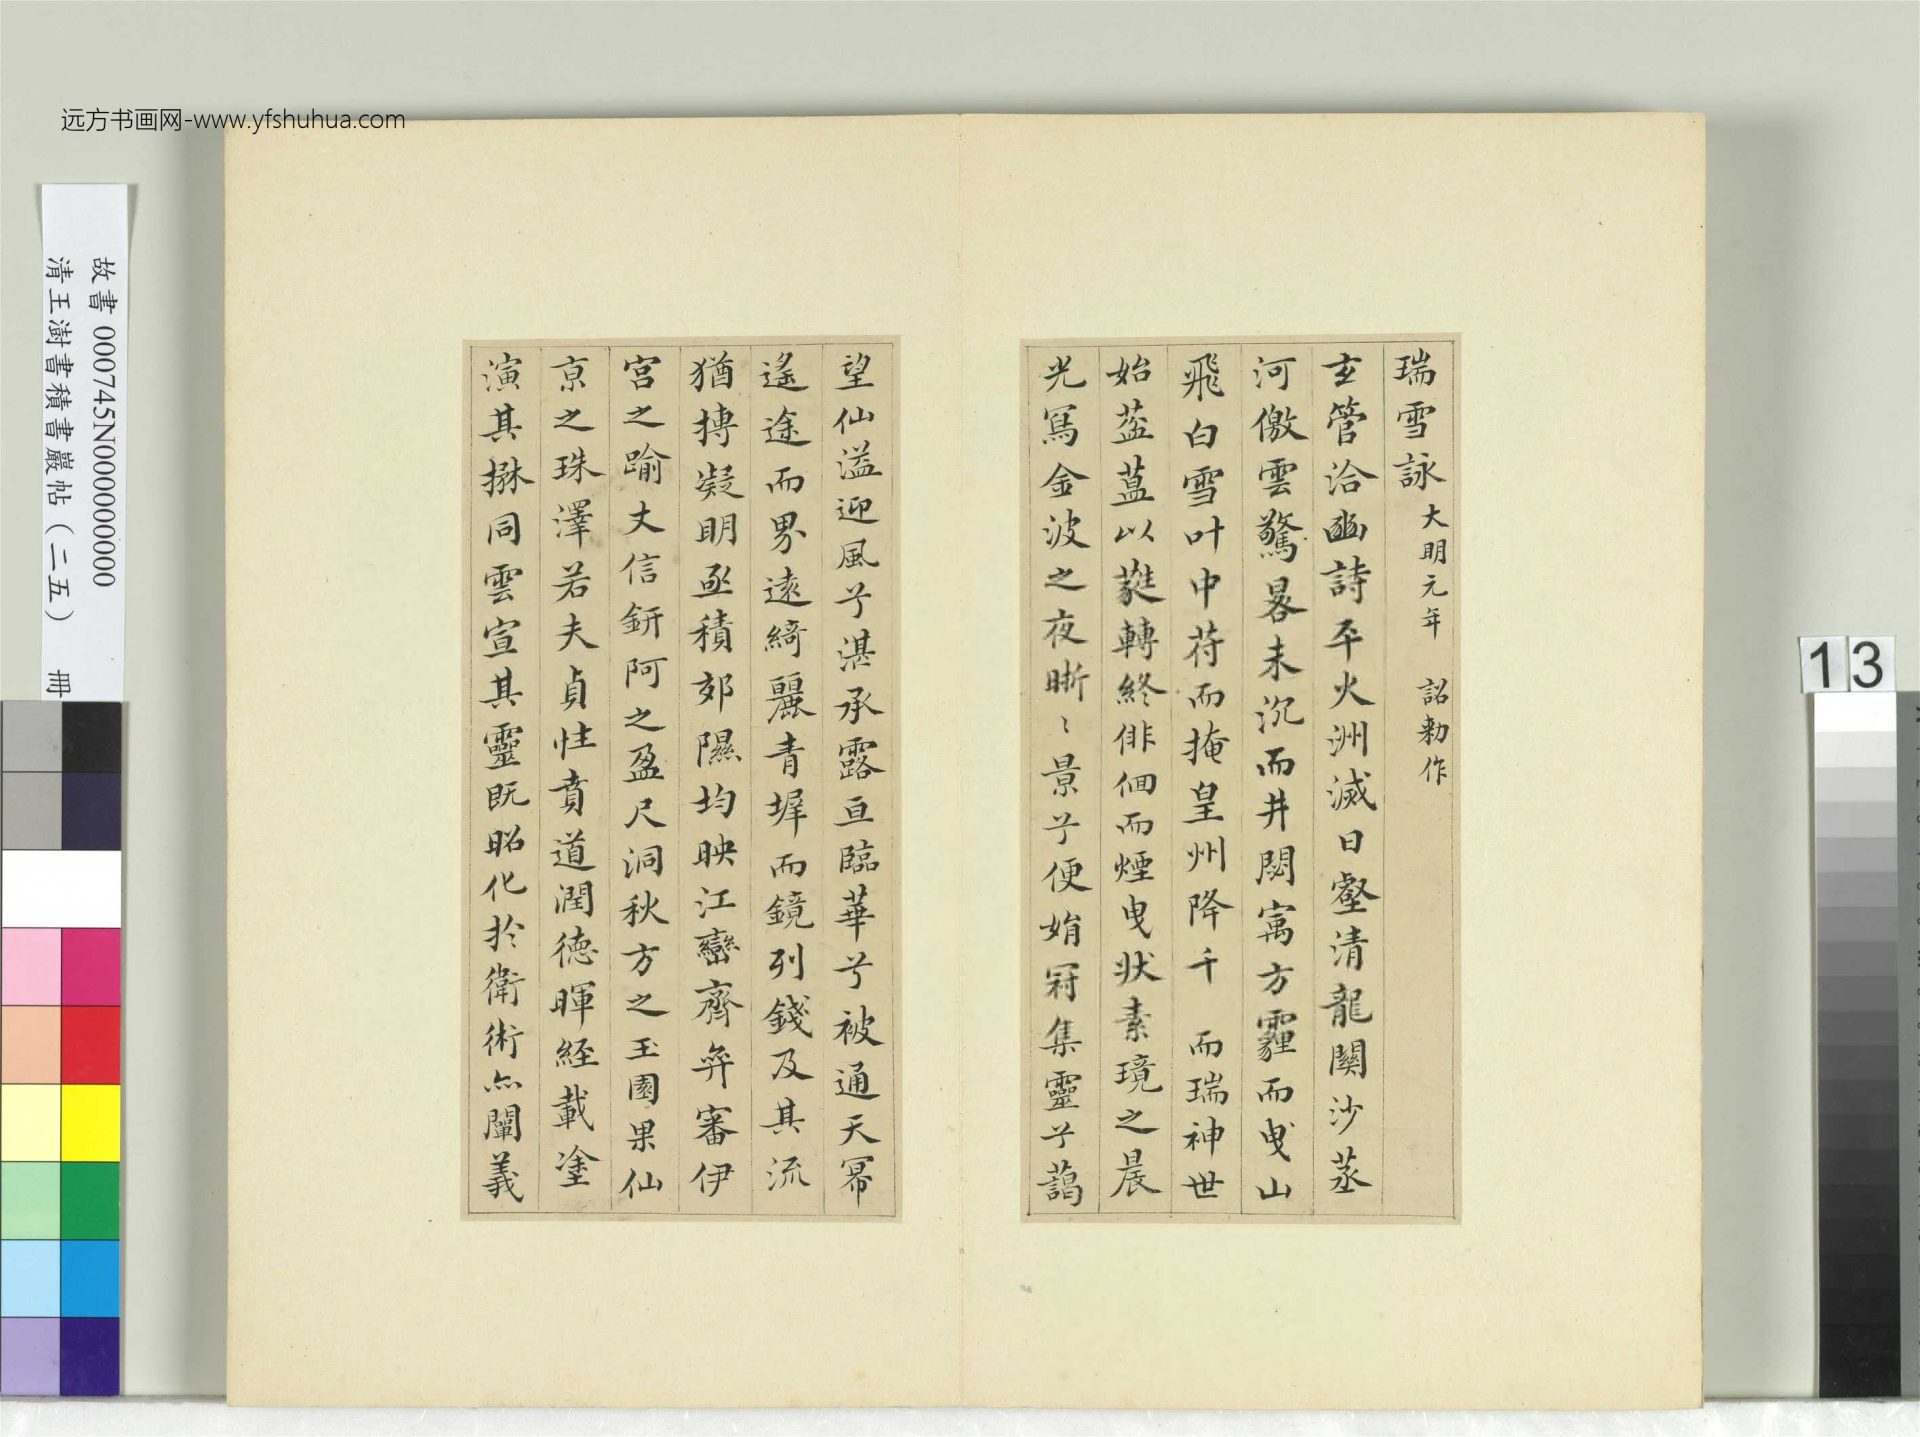 远方书画网-www.yfshuhua.com
故書 000745N000000000
清王澍書積書巖帖（二五） 冊
13
瑞雪詠 大明元年 詔勅作
玄管洽豳詩平火洲滅日壑清龍關沙蒸
河儌雲驚晷未沉而井閟寓方霾而曵山
飛白雪叶中苻而掩皇州降千 而瑞神世
始葢蒀以蓯轉終俳佪而煙曵狀素境之晨
光冩金波之夜晣〻景兮便娟冠集靈兮藹
望仙溢迎風兮湛承露亘臨華兮被通天冪
遙途而界遠綺麗青墀而鏡列錢及其流
猶摶凝明亟積郊隰均映江巒齊弈審伊
宮之踰丈信鈃阿之盈尺洞秋方之玉園果仙
京之珠澤若夫貞性賁道潤徳暉經載塗
演其揪同雲宣其靈既昭化扵衛術亦闡義